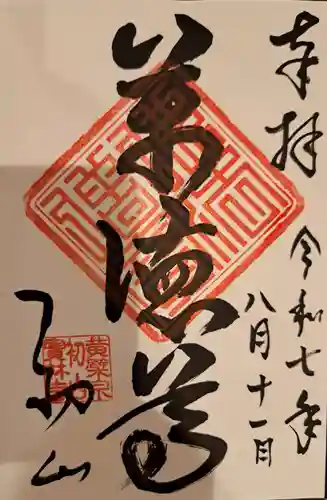 奉拝
令和七年
八月十一日
萬德尊
初山
黄檗宗
初山
寶林寺